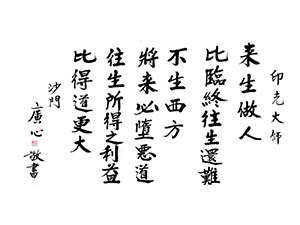 印光大师
来生做人
比臨終往生還難
不生西方
將来必墮悪道
往生所得之利益
比得道更大
沙門
廣心
敬書